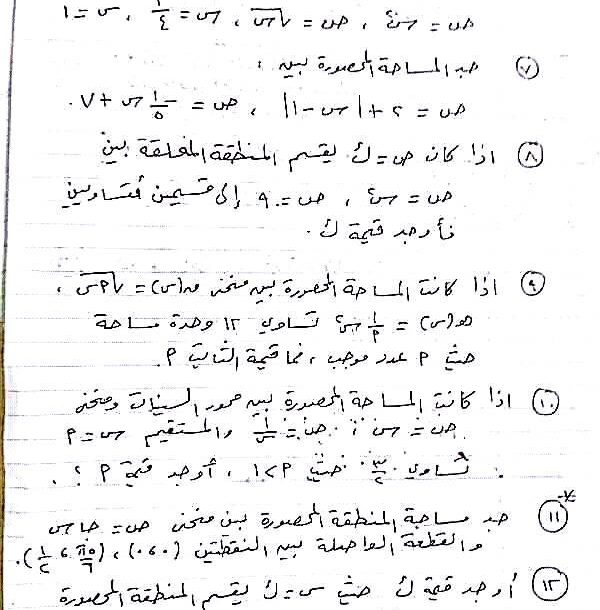 ص = س² ، ص = √س ، س = ١/٤ ، س = ١
٧ جد المساحة المحصورة بين :
ص = ٢ + |س - ١| ، ص = ١/٥ س + ٧ .
٨ اذا كان ص = ك يقسم المنطقة المغلقة بين
ص = س² ، ص = ٩ إلى قسمين متساويين
فأوجد قيمة ك .
٩ اذا كانت المساحة المحصورة بين منحنى ق(س) = √م س ،
هـ(س) = ١/م س² تساوي ١٢ وحدة مساحة
حيث م عدد موجب ، فما قيمة الثابت م .
١٠ اذا كانت المساحة المحصورة بين محور السينات ومنحنى
ص = س² ، ص = ١/س والمستقيم س = م
تساوي ٣/٢ حيث م > ١ ، أوجد قيمة م ؟ .
١١ جد مساحة المنطقة المحصورة بين منحنى ص = جا س
والقطعة الواصلة بين النقطتين (٠ ، ٠) ، (٥π/٦ ، ١/٢) .
١٢ أوجد قيمة ك حيث س = ك يقسم المنطقة المحصورة